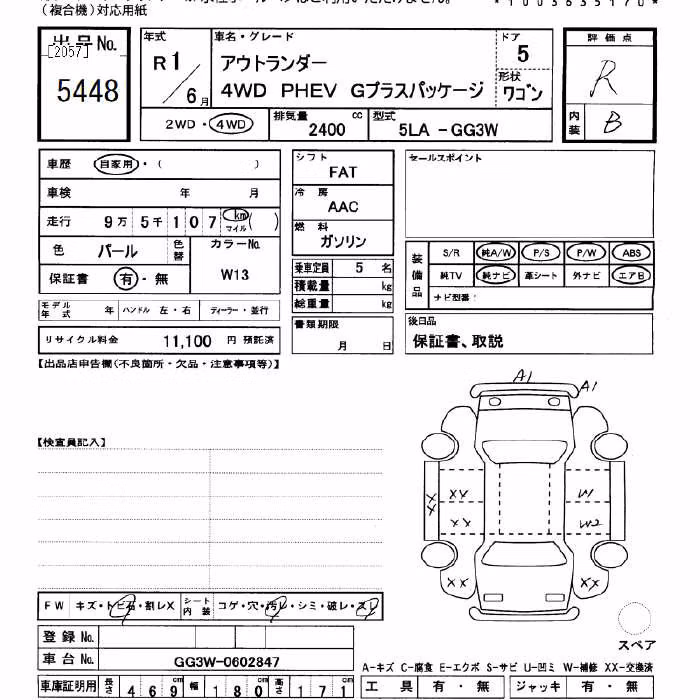 (複合機)対応用紙
*1003635170*
出品No.
[2057]
5448
年式
R1/6月
車名・グレード
アウトランダー
4WD PHEV Gプラスパッケージ
ドア
5
形状
ワゴン
2WD・4WD
排気量
2400 cc
型式
5LA -GG3W
評価点
R
内装
B
車歴 自家用・( )
車検 年 月
走行 9万 5千 1 0 7 km マイル ( )
色 パール 色替
カラーNo.
W13
保証書 有・無
モデル年式 年 ハンドル 左・右 ディーラー・並行
リサイクル料金 11,100 円 預託済
シフト
FAT
冷房
AAC
燃料
ガソリン
乗車定員 5 名
積載量 kg
総重量 kg
書類期限
月 日
セールスポイント
装備品
S/R 純A/W P/S P/W ABS
純TV 純ナビ 革シート 外ナビ エアB
ナビ型番:
後日品
保証書、取説
【出品店申告欄(不良箇所・欠品・注意事項等)】
【検査員記入】
A1
A1
XX
XX
XX
XX
W1
W2
XX
XX
スペア
FW キズ・トビ石・割レX
シート内装 コゲ・穴・汚レ・シミ・破レ・スレ
登録No.
車台No. GG3W-0602847
車庫証明用 長さ 469cm 幅 180cm 高さ 171cm
A-キズ C-腐食 E-エクボ S-サビ U-凹ミ W-補修 XX-交換済
工具 有・無 ジャッキ 有・無